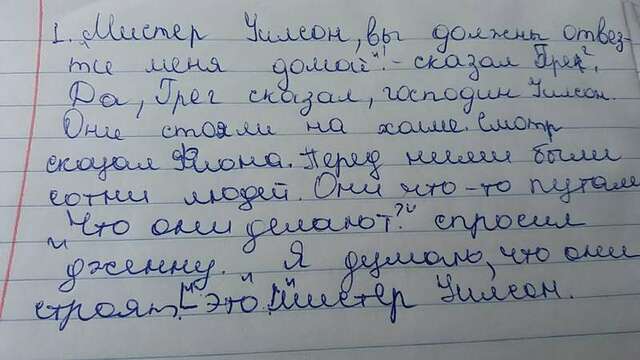 1. Мистер Уилсон, вы должны отвез-
ти меня домой"!- сказал Грег".
Да, Грег сказал, господин Уилсон.
Они стояли на холме. Смотр
сказал Фиона. Перед ними были
сотни людей. Они что-то путали
"Что они делают?" спросил
дженну. Я думаю, что они
строят"- это "мистер Уилсон.